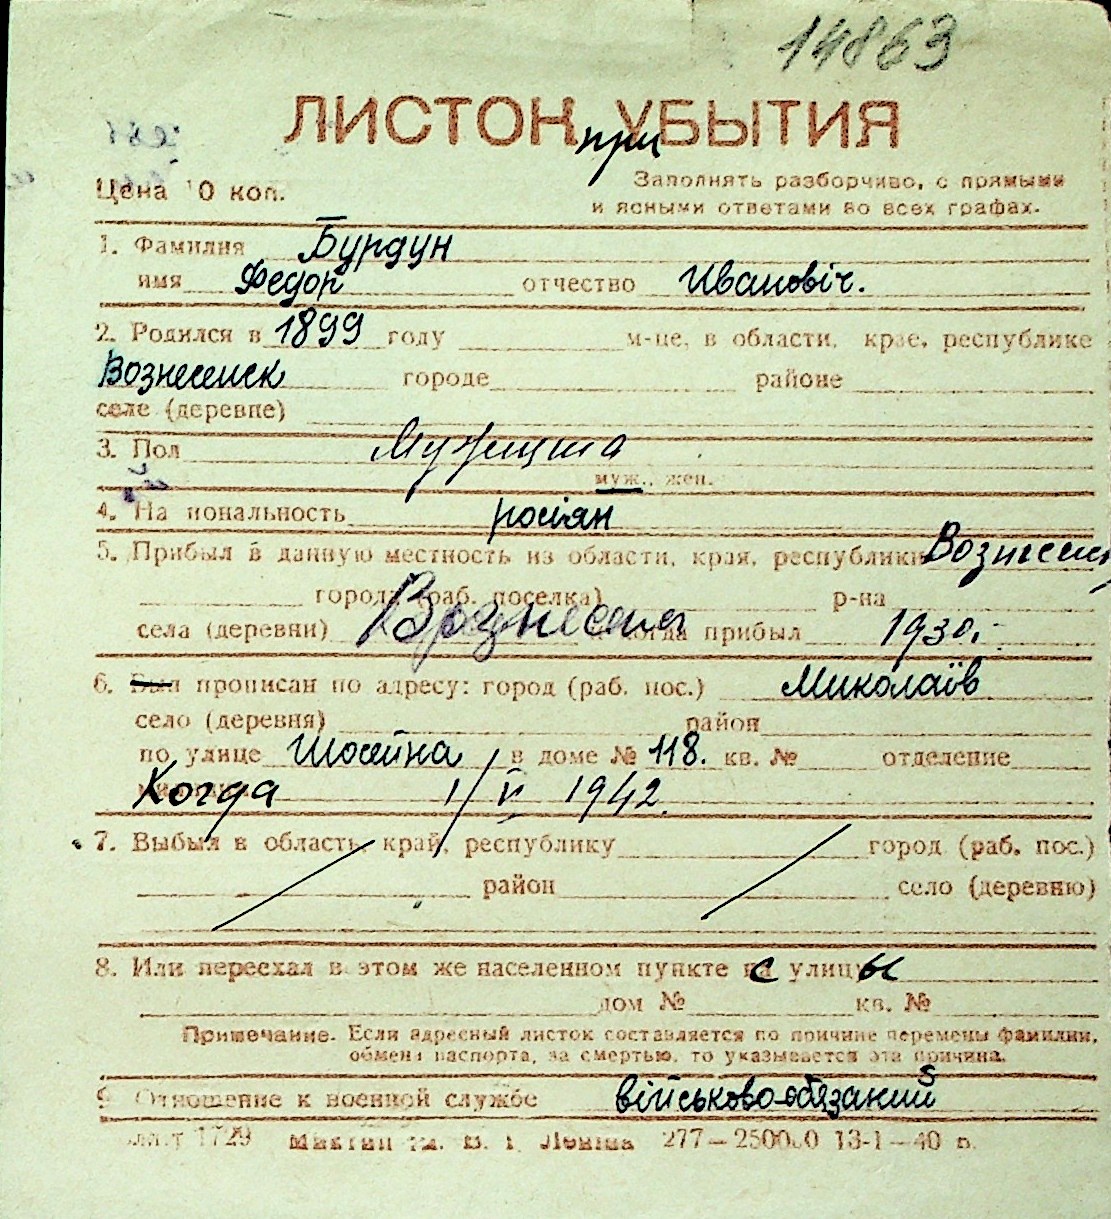 14863
ЛИСТОК при УБЫТИЯ
Цена 10 коп.
Заполнять разборчиво, с прямыми
и ясными ответами во всех графах.
1. Фамилия Бурдун
имя Федор отчество Івановіч.
2. Родился в 1899 году м-це, в области, крае, республике
Вознесенск городе районе
селе (деревне)
3. Пол Мужщина
муж., жен.
4. Национальность росіян
5. Прибыл в данную местность из области, края, республики Вознесен
города (раб. поселка) р-на
села (деревни) Вознесеня когда прибыл 1930.
6. Был прописан по адресу: город (раб. пос.) Миколаїв
село (деревня) район
по улице Шосейна в доме № 118. кв. № отделение
Когда 1/V 1942.
7. Выбыл в область, край, республику город (раб. пос.)
район село (деревню)
8. Или переехал в этом же населенном пункте с улицы
дом № кв. №
Примечание. Если адресный листок составляется по причине перемены фамилии,
обмена паспорта, за смертью, то указывается эта причина.
9. Отношение к военной службе військово-обязаний
1729 В. І. Леніна 277—250000 13-1—40 р.